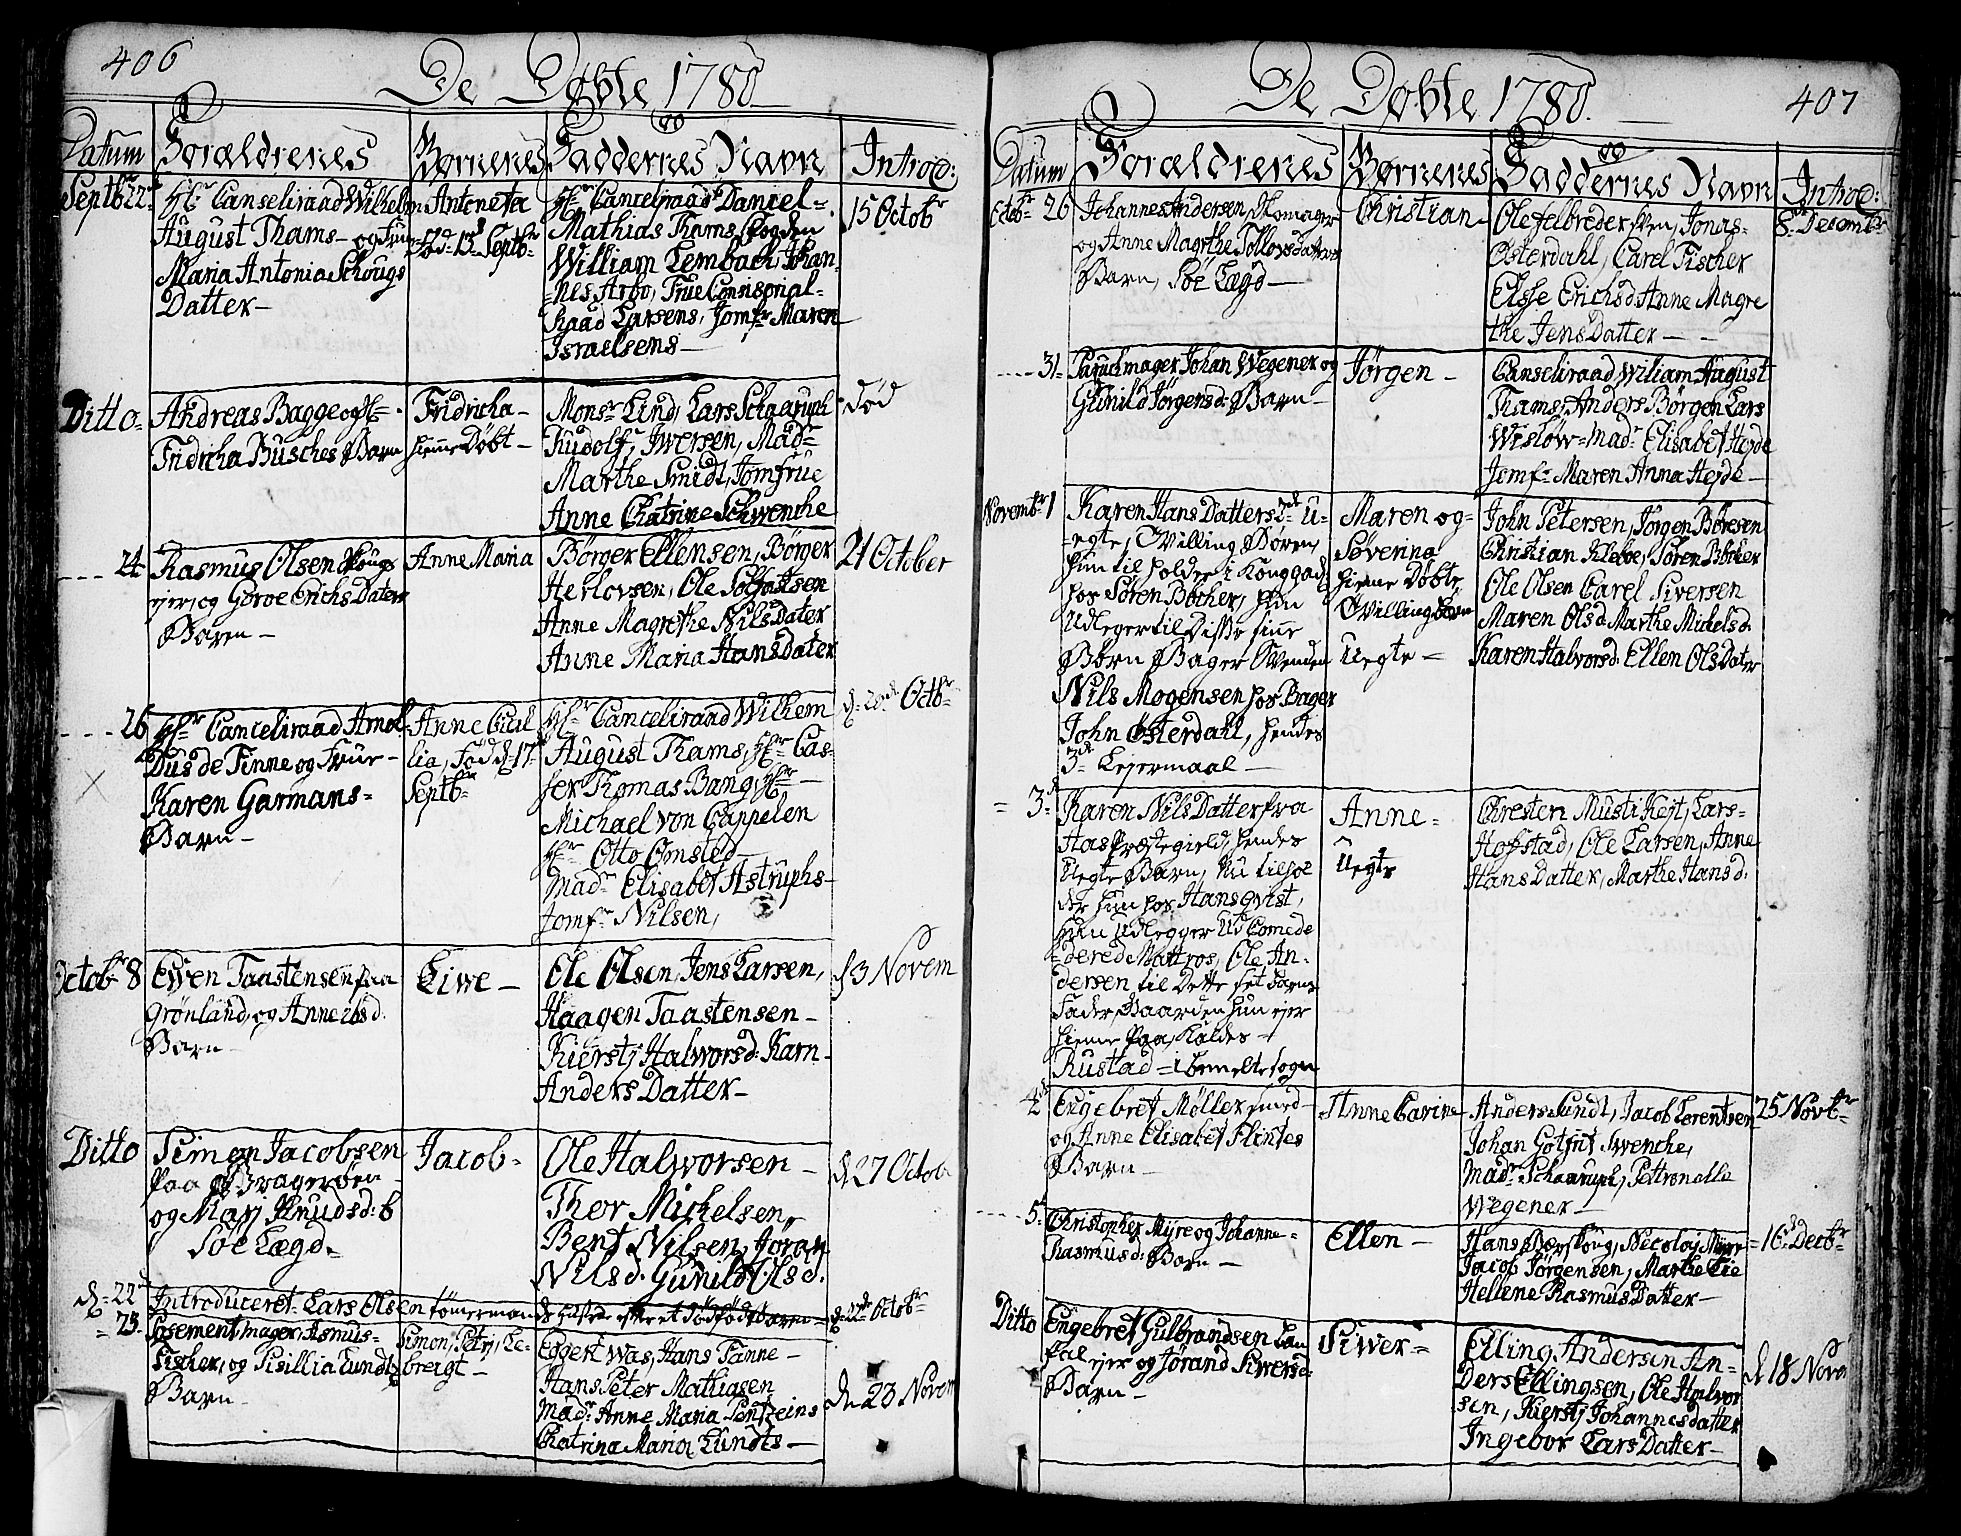 406
De Døbte 1780
Datum
Forældrenes
Børnenes
Faddernes Navn
Introd:
Septbr 22de
Hr Canseliraad Wilhelm
August Thams og Frue
Maria Antonia Schougs
Datter
Antoneta
Fød d 13 Septbr
Hr Cancelieraad Daniel
Mathias Thams Skogden
William Lembach, Johan-
nes Arbo, Frue Consisonal-
Raad Larsens, Jomfr Maren
Israelsens
15 Octobr
Ditto
Andreas Bagge og
Fridricha Busches Barn
Fridricha
hiemme Døbt
Monsr Lind, Lars Schaaruph
Rudolf Iwersen, Madr
Marthe Smidt, Jomfrue
Anne Chatrine Schwenche
død
24
Rasmus Olsen
ejer, og Gorve Erichs Dater
Barn
Anne Maria
Børger Ellensen, Børger
Herlovsen, Ole Solfastsen
Anne Magrethe Nilsdater
Anne Maria Hansdater
21 October
26
Hr Canceliraad Arnol-
dus de Finne og Frue
Karen Garmans
Barn
Anne Cicil
lia, Fød d 17
Septbr
Hr Canceliraad Wilhem
August Thams, Hr Cas-
ser Thomas Bang, Hr
Michael von Cappelen
Hr Otto Omsted
Madr Elisabet Astruphs
Jomfr Nilsen,
d. 20de Octbr
Octobr 8
Ewen Taastensen fra
Grønland, og Anne Ibsd.
Barn
Liwe
Ole Olsen, Jens Larsen,
Haagen Taastensen
Kierstj Halworsd: Karn
Anders Datter
d 3 Novem
Ditto
Simon Jacobsen
paa Bragerøen
og Marj Knudsd: B
Søe Lægd
Jacob
Ole Halworsen
Thor Michelsen
Bent Nilsen, Joran
Nilsd. Gunild Olsd.
d 27 Octob
d. 22
Introduceret Lars Olsen tømermands Hustrue efter et dødfødt barn
d. 22 Octobr
25
Posement mager, Asmus
Fischer, og Sisillia Lundts
Barn
Simon, Petrj, Le-
bregt
Eggert Was, Hans Tanne
Hans Peter Mathiasen
Madr Anne Maria Pentzeins
Chatrina Maria Lundts
d. 23 Novem
407
De Døbte 1780
Datum
Forældrenes
Børnenes
Faddernes Navn
Introd:
Octbr 26
Johannes Andersen, Skomager
og Anne Magrthe Tollovsdaters
Barn, Søe Lægd
Christian
Ole felbreder sten, Jonas
Østerdahl, Carel Fischer
Elsse Erichsd Anne Magre
the Jens Datter
8 Decembr
31
Paruchmager Johan Wegener og
Gunild Jørgensd: Barn
Jørgen
Canseliraad Wiliam August
Thams, Anders Børgen Lars
Wisløw Madr Elisabet Hejde
Jomfr Maren Anna Hejde
Novembr 1
Karen Hans Datters 2de u-
egte, Tvilling Børen,
hun til holder i Konggad:
hos Søren Bøcher, hun
Udleger til Disse sine
Børn Bager Svenden
Nils Mogensen hos Bager
John Østerdahl, hendes
3de Lejermaal
Maren og
Søverina
hieme Døbte,
Tvilling Børn
Uegte
John Petersen, Jørgen Børesen
Christian Kleboe, Søren Bøcher
Ole Olsen Carel Siversen
Maren Olsd. Marthe Michelsd.
Karen Halvorsd. Ellen Olsdater
3
Karen Nils Datter fra
Has Præstegield, hendes
Uegte Barn, Nu tilhol
der hun hos Hans Qvist,
hun udlegger Ud Comede
dered Mattros, Ole An-
dersen til Dette sit Barns
Fader, Gaarden hun ejer
hieme paa, Kaldes
Rustad i bemelte sogn
Anne
Uegte
Chresten Musti Kejt, Lars
Hofstad, Ole Larsen, Anne
Hans Datter, Marthe Hansd.
4de
Engebret Møller smed
og Anne Elisabet Flintes
Barn
Anne Carine
Anders Lundt, Jacob Lorentsen
Johan Gotfrit Swenche,
Madr Schaaruph, Pettronelle
Wegener
25 Novbr
5
Christopher Myre og Johanne
Rasmusd: Barn
Ellen
Hans Bærskoug, Necolaj Myre
Jacob Jørgensen, Marthe Lie
Hellene Rasmus Datter
16 Decbr
Ditto
Engebret Gulbrandsen
ejer og Jørand Siwersd
Barn
Siwer
Elling Andersen An-
ders Ellingsen, Ole Halvor
sen, Kierstj Johannesdatter
Ingebor Lars Datter
d 18 Nove